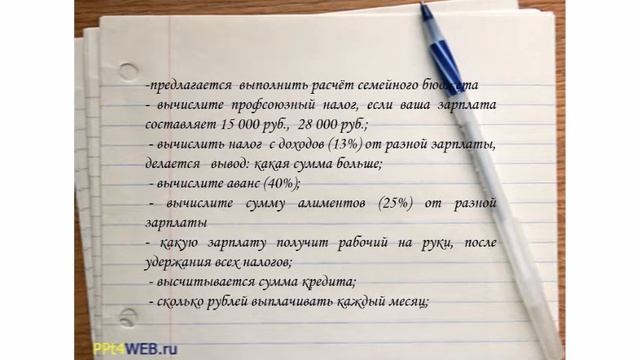 -предлагается выполнить расчёт семейного бюджета
- вычислите профсоюзный налог, если ваша зарплата
составляет 15 000 руб., 28 000 руб.;
- вычислить налог с доходов (13%) от разной зарплаты,
делается вывод: какая сумма больше;
- вычислите аванс (40%);
- вычислите сумму алиментов (25%) от разной
зарплаты
- какую зарплату получит рабочий на руки, после
удержания всех налогов;
- высчитывается сумма кредита;
- сколько рублей выплачивать каждый месяц;
PPt4WEB.ru